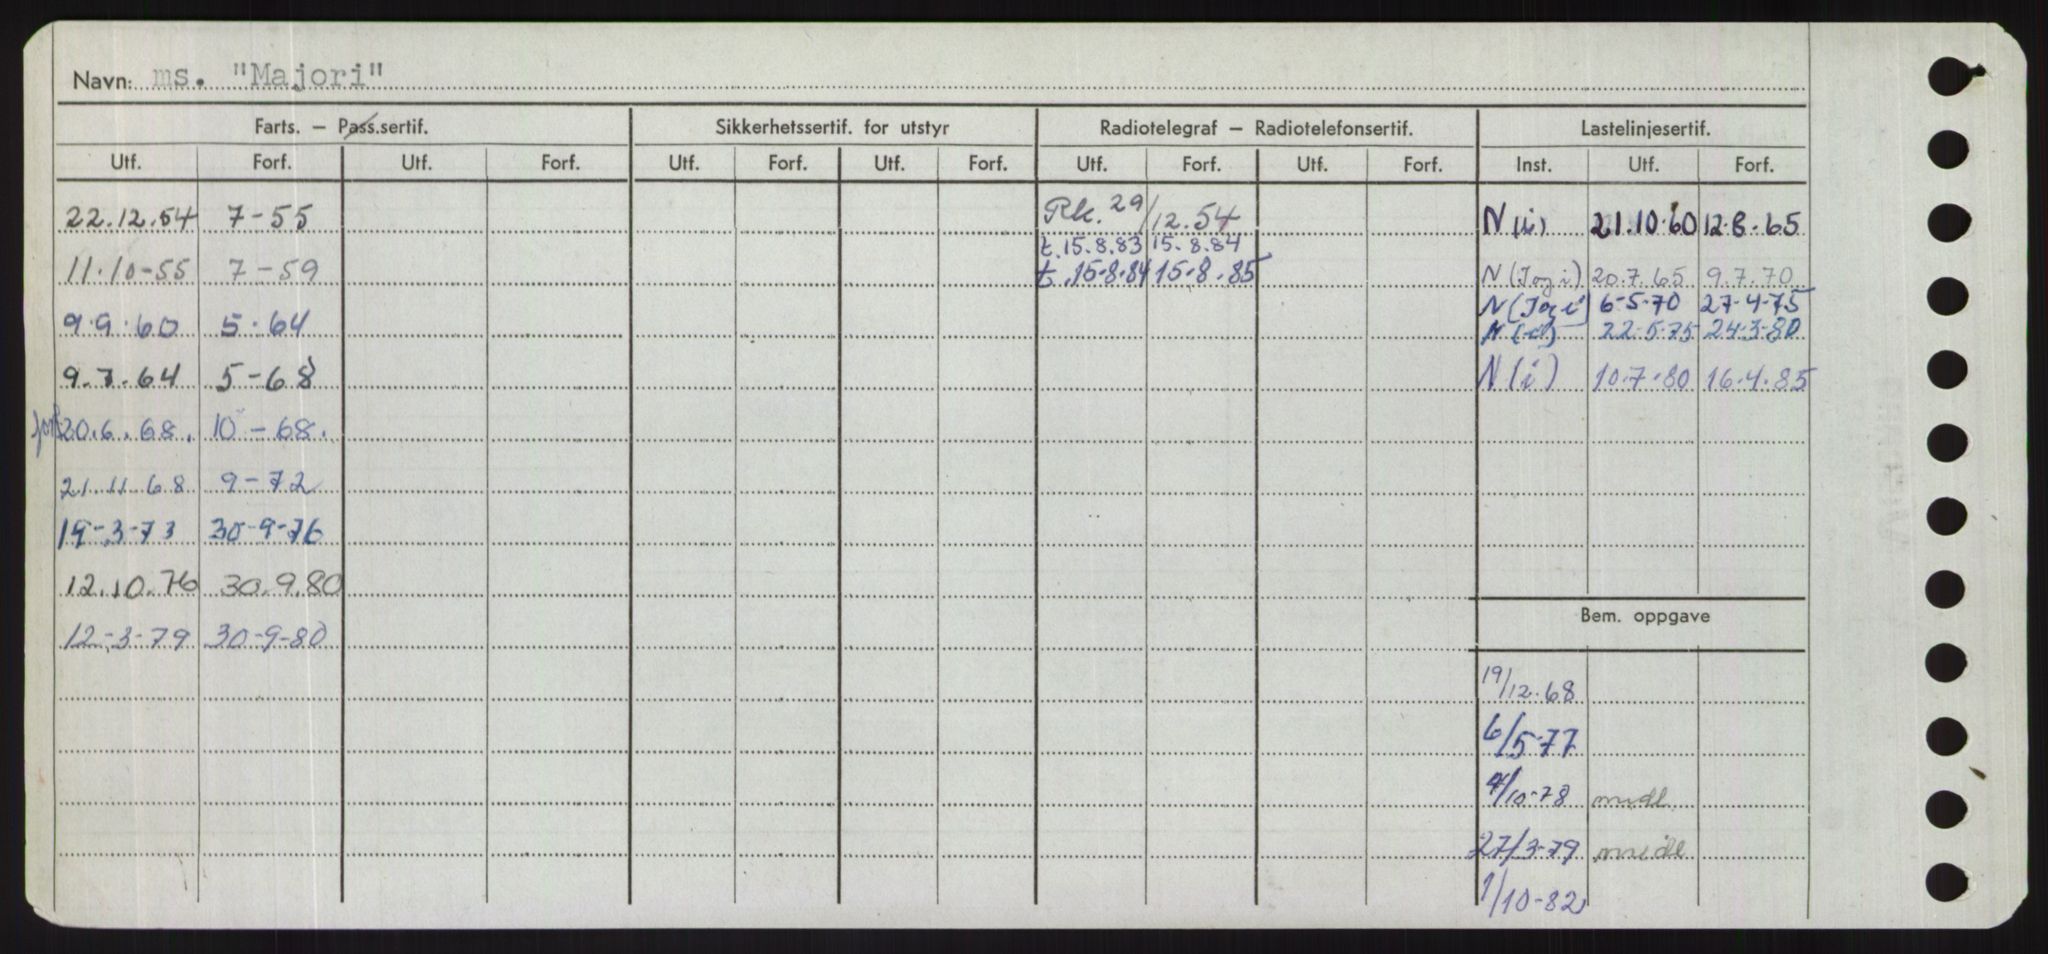 Navn: ms. "Majori"
Farts. — Pass.sertif. Sikkerhetssertif. for utstyr Radiotelegraf — Radiotelefonsertif. Lastelinjesertif.
Utf. Forf. Utf. Forf. Utf. Forf. Utf. Forf. Utf. Forf. Utf. Forf. Inst. Utf. Forf.
22.12.54 7-55 Rk. 29/12.54 N(i) 21.10.60 12.8.65
t. 15.8.83 15.8.84
11.10-55 7-59 t. 15-8.84 15-8.85 N(I og i) 20.7.65 9.7.70
N(I og i) 6-5-70 27-4-75
9.9.60 5.64 N(i) 22-5-75 24-3-80
9.7.64 5-68 N(i) 10.7.80 16.4.85
20.6.68. 10-68.
21.11.68 9-72
19-3-73 30-9-76
12.10.76 30.9.80
Bem. oppgave
12-3-79 30-9-80
19/12.68
6/5-77
4/10-78 midl.
27/3-79 midl
1/10-82